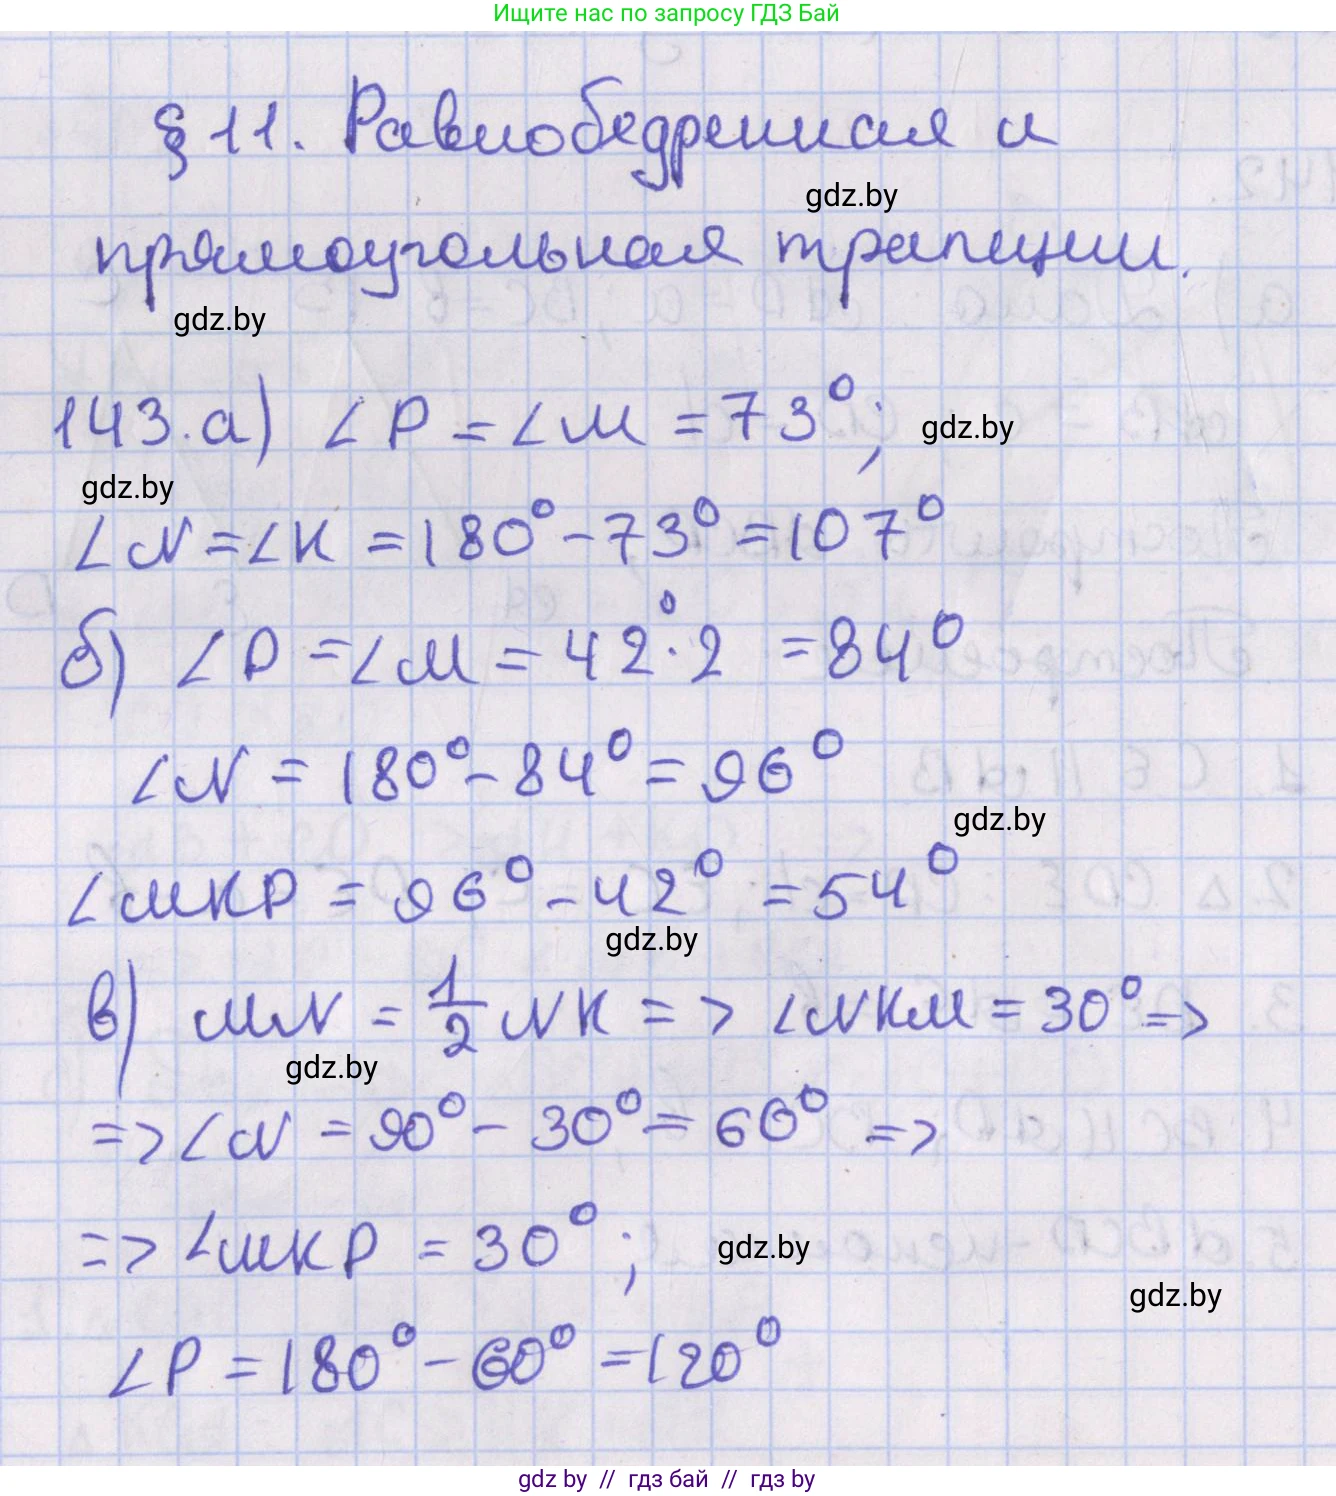 Ищите нас по запросу ГДЗ Бай
§ 11. Равнобедренная и
gdz.by
прямоугольная трапеции.
gdz.by
143. а) ∠P = ∠M = 73°;
gdz.by
gdz.by
∠N = ∠K = 180° - 73° = 107°
б) ∠P = ∠M = 42° · 2 = 84°
∠N = 180° - 84° = 96°
gdz.by
∠MKP = 96° - 42° = 54°
gdz.by
в) MN = 1/2 NK => ∠NKM = 30° =>
gdz.by
=> ∠N = 90° - 30° = 60° =>
=> ∠MKP = 30°;
gdz.by
gdz.by
∠P = 180° - 60° = 120°
gdz by // гдз бай // гдз by